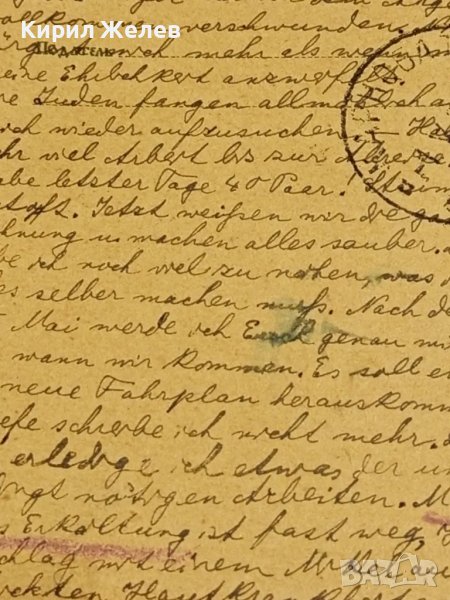 Кирил Желев
vollkommen verschwunden.
noch mehr als wenn m
Подател
eine
re Juden fangen allmählich a
ich wieder aufzusuchen. – Ha
hr viel Arbeit bis zur Abreise
abe letzter Tage 40 Paar! Strüm
Jetzt weißen wir die ga
hnung u. machen alles sauber.
be ich noch viel zu nähen, was
es selber machen muß. Nach de
Mai werde ich Euch genau mi
wann wir kommen. Es soll e
neue Fahrplan herauskomm
efe schreibe ich nicht mehr.
erledige ich etwas der un
ingt nötigen Arbeiten. M
s Erkältung ist fast weg,
schlag mit einem Mittel au
ckten
bazar